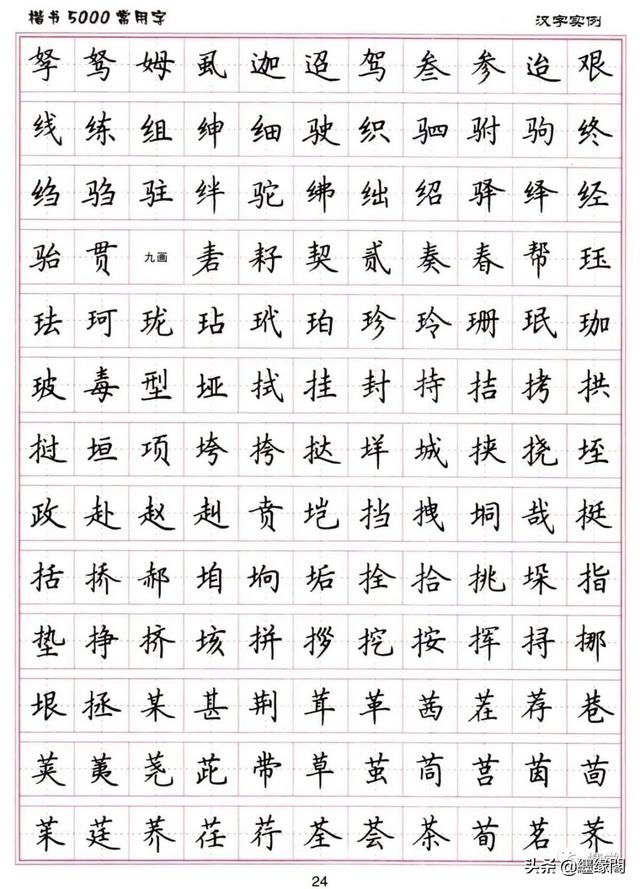 楷书5000常用字 汉字实例
孥 驽 姆 虱 迦 迢 驾 叁 参 迨 艰
线 练 组 绅 细 驶 织 驷 驸 驹 终
绉 驺 驻 绊 驼 绋 绌 绍 驿 绎 经
骀 贯 九画 砉 耔 契 贰 奏 春 帮 珏
珐 珂 珑 玷 玳 珀 珍 玲 珊 珉 珈
玻 毒 型 垭 拭 挂 封 持 拮 拷 拱
挝 垣 项 垮 挎 挞 垟 城 挟 挠 垤
政 赴 赵 赳 贲 垲 挡 拽 垌 哉 挺
括 挢 郝 垍 垧 垢 拴 拾 挑 垛 指
垫 挣 挤 垓 拼 拶 挖 按 挥 挦 挪
垠 拯 某 甚 荆 茸 革 茜 茬 荐 巷
荚 荑 荛 茈 带 草 茧 茼 莒 茵 茴
茱 莛 荞 荏 荇 荃 荟 茶 荀 茗 荠
24
头条 @缠缘阁